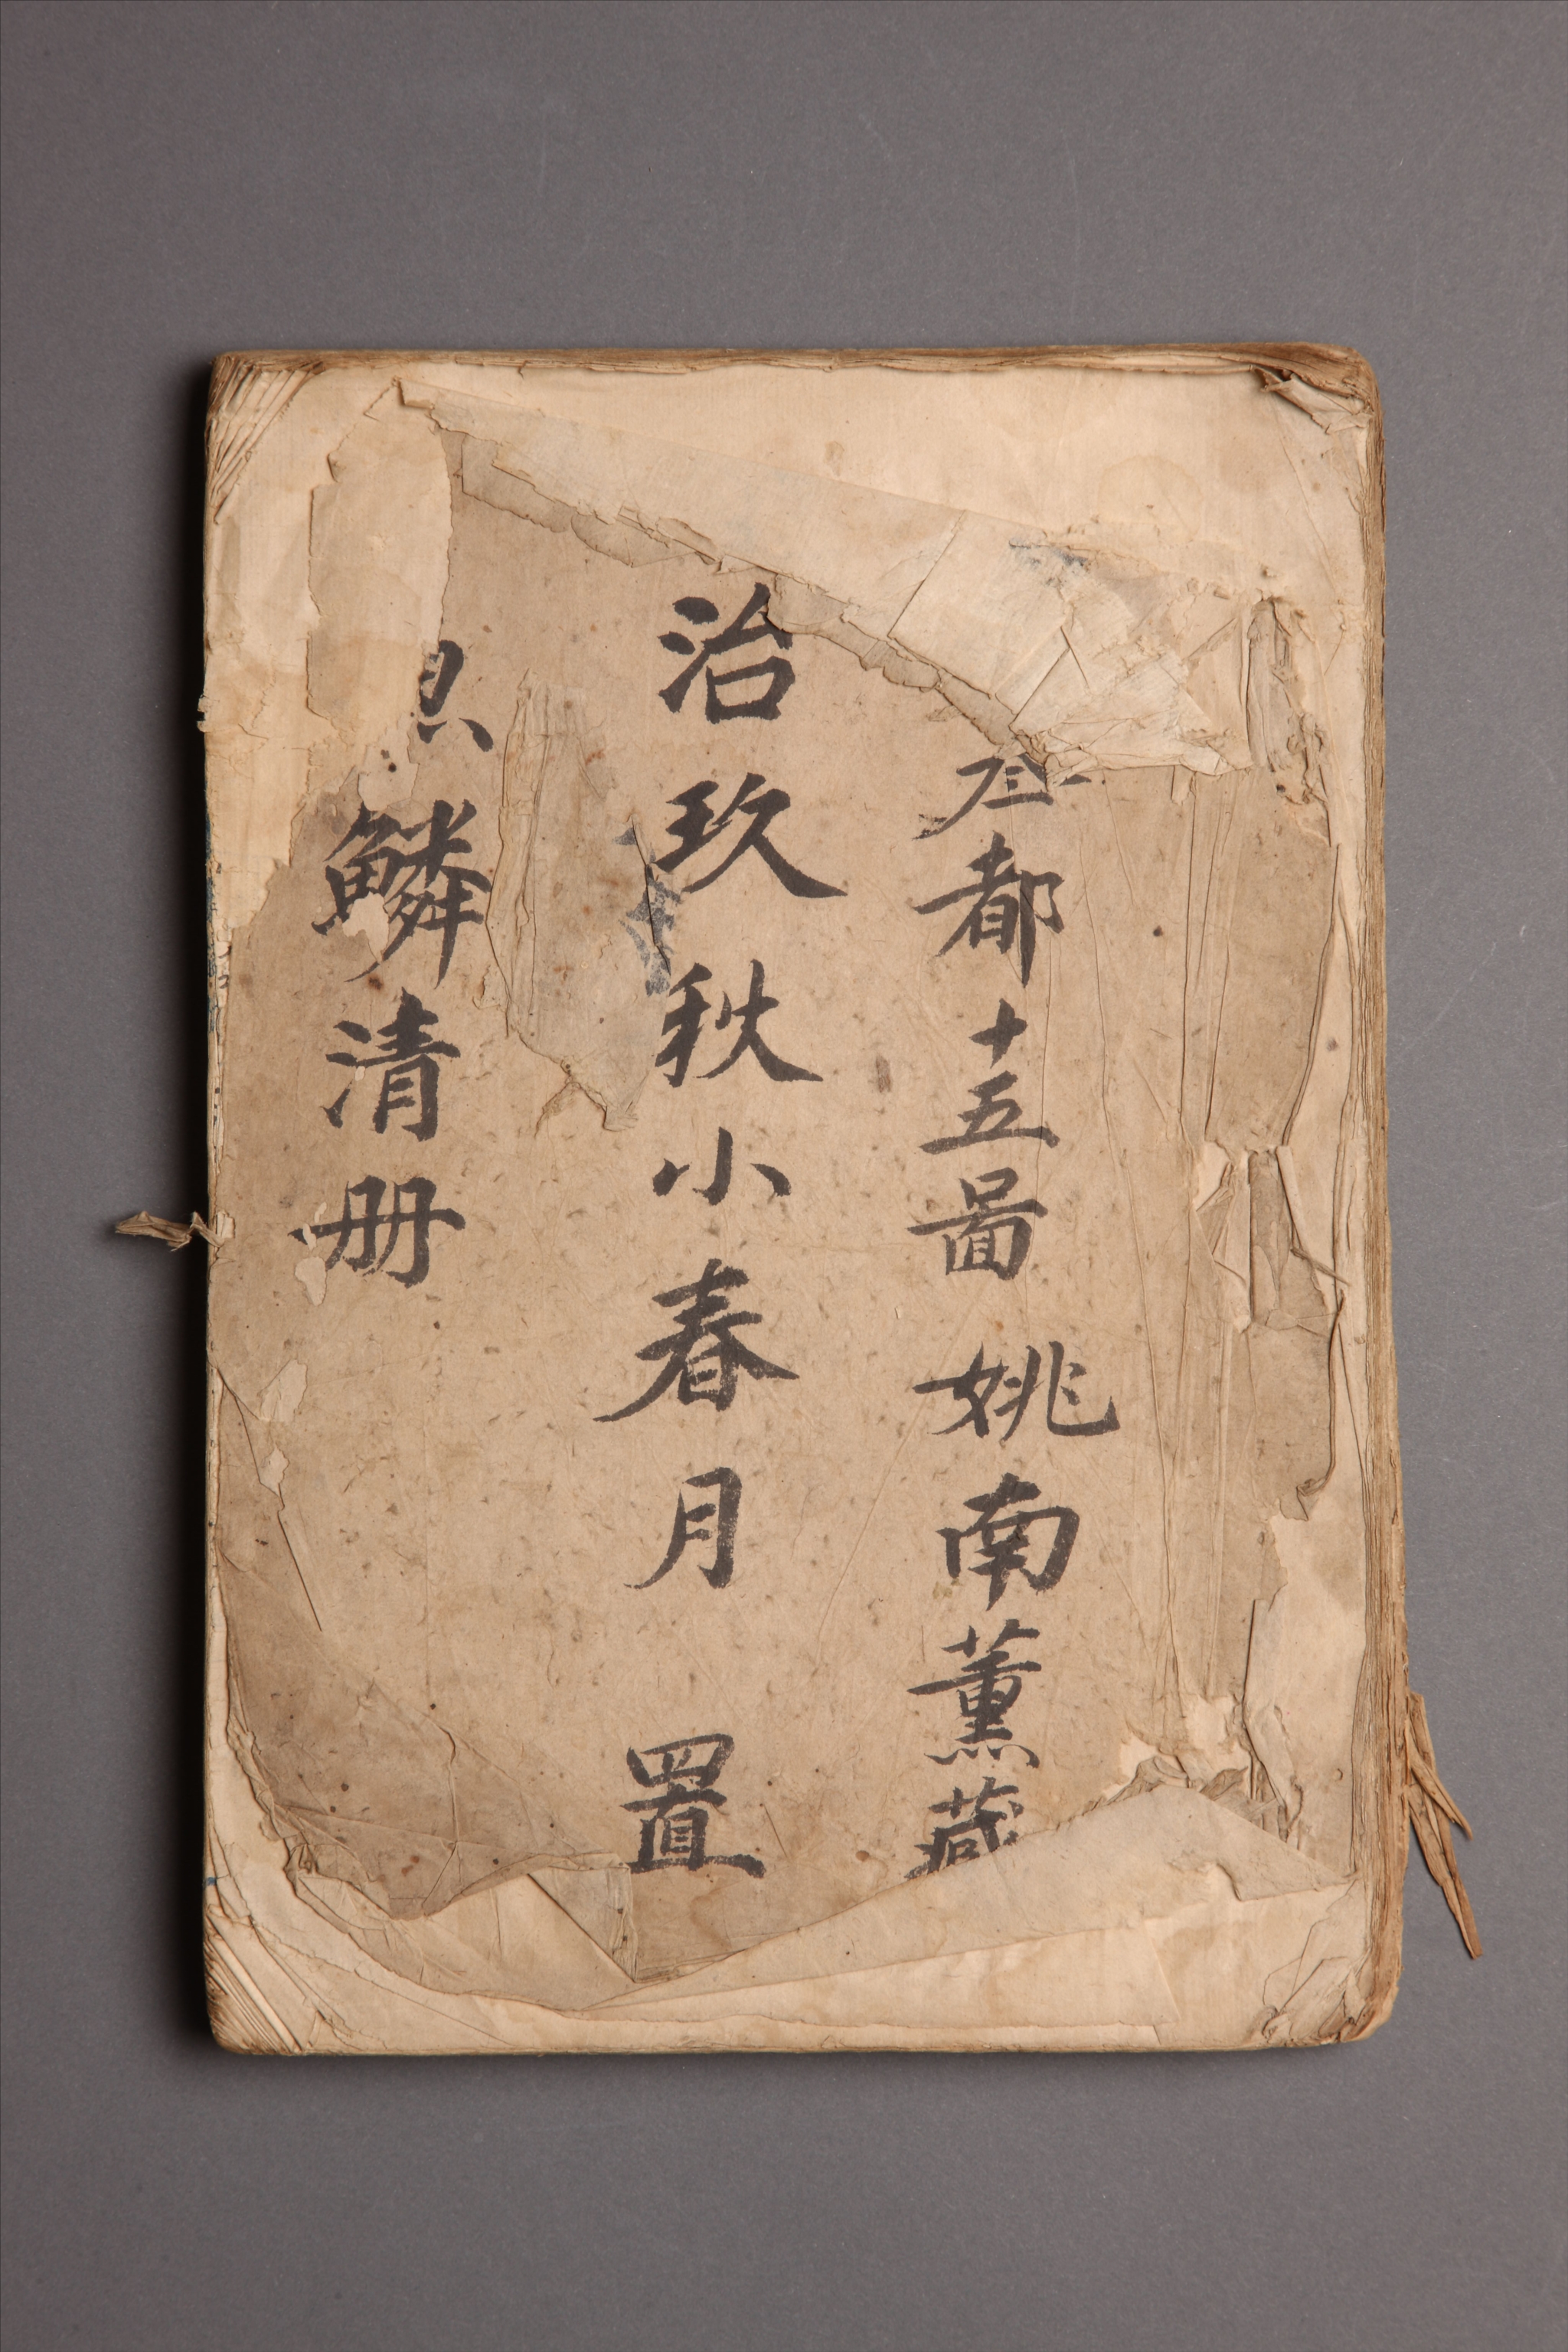 都十五啚 姚南薰藏
治玖秋小春月 置
鱗清册